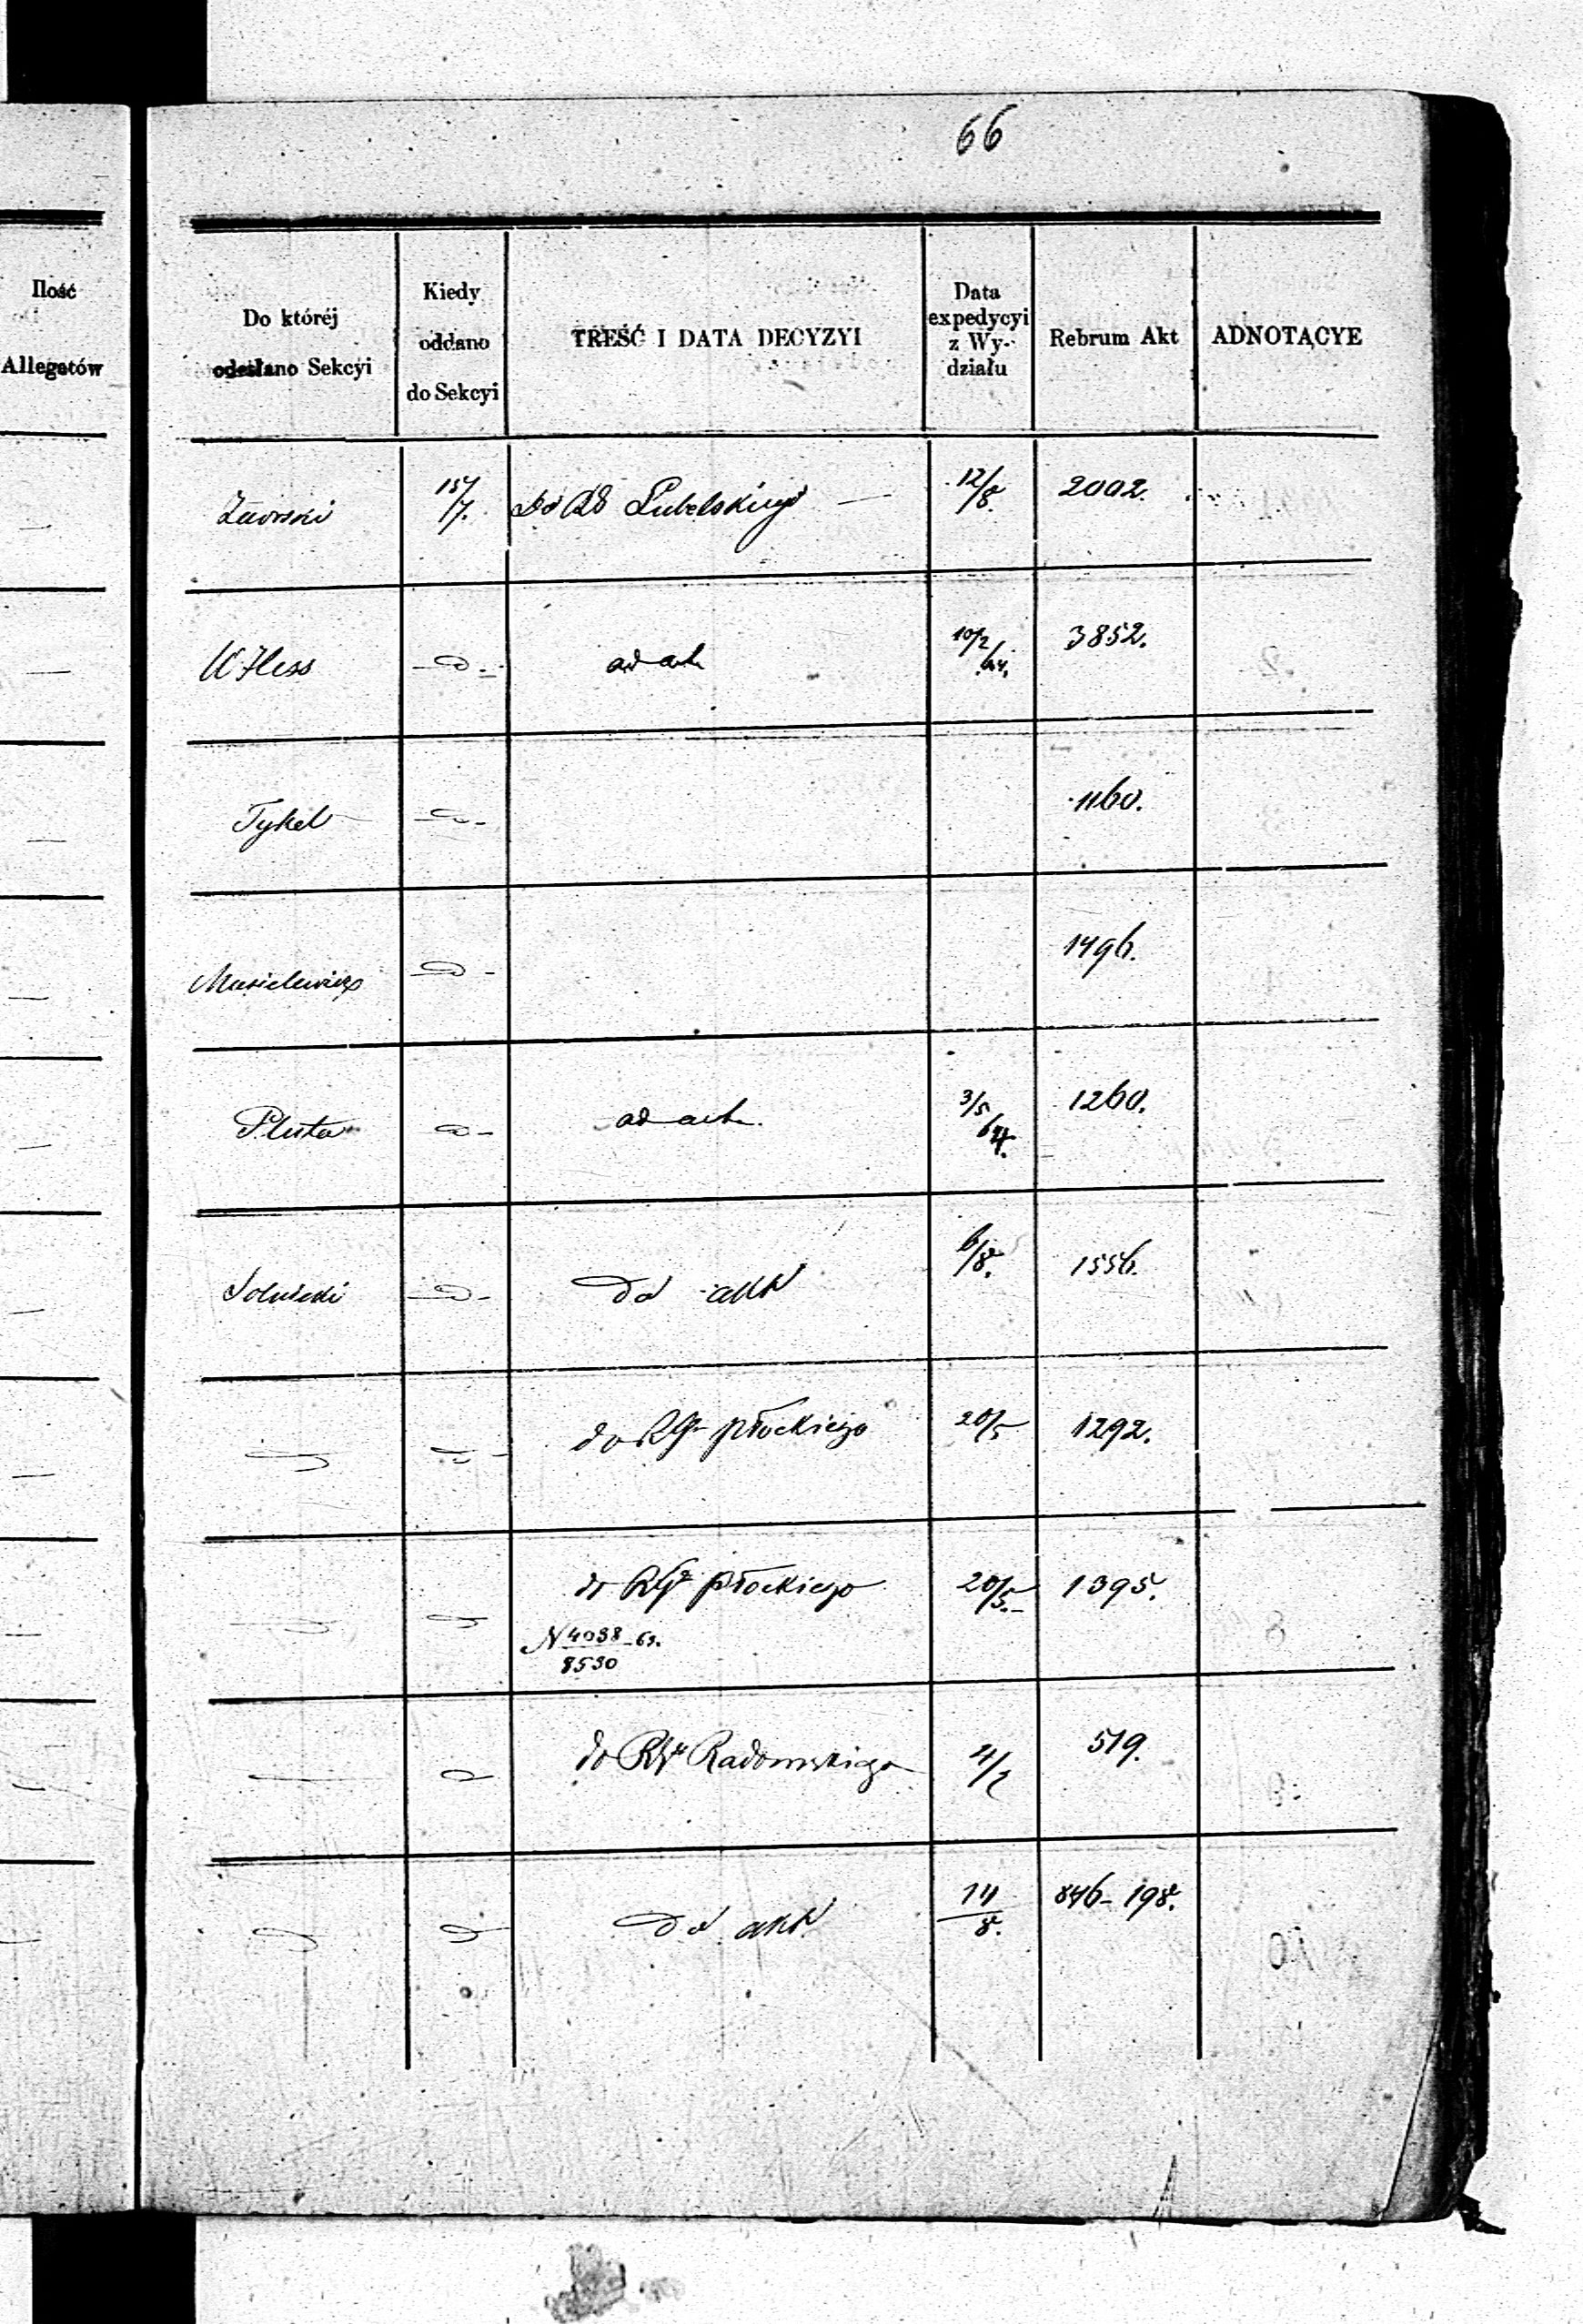 66
Ilość
Allegatów
Do któréj
odesłano Sekcyi
Kiedy
oddano
do Sekcyi
TREŚĆ I DATA DECYZYI
Data
expedycyi
z Wy-
działu
Rebrum Akt
ADNOTACYE
15/7. Do Lubelskiego — 12/8. 2002.
Hess ad acta 10/2/64. 3852.
Tykel 1160.
Musielewicz 1496.
Pluta ad acta. 3/5/64. 1260.
do akt 6/8. 1556.
do płockiego 20/5 1292.
do płockiego 20/5.- 1395.
N 4038 - 63.
8530
do Radomskiego 4/2 519.
do akt 14/8. 846-198.